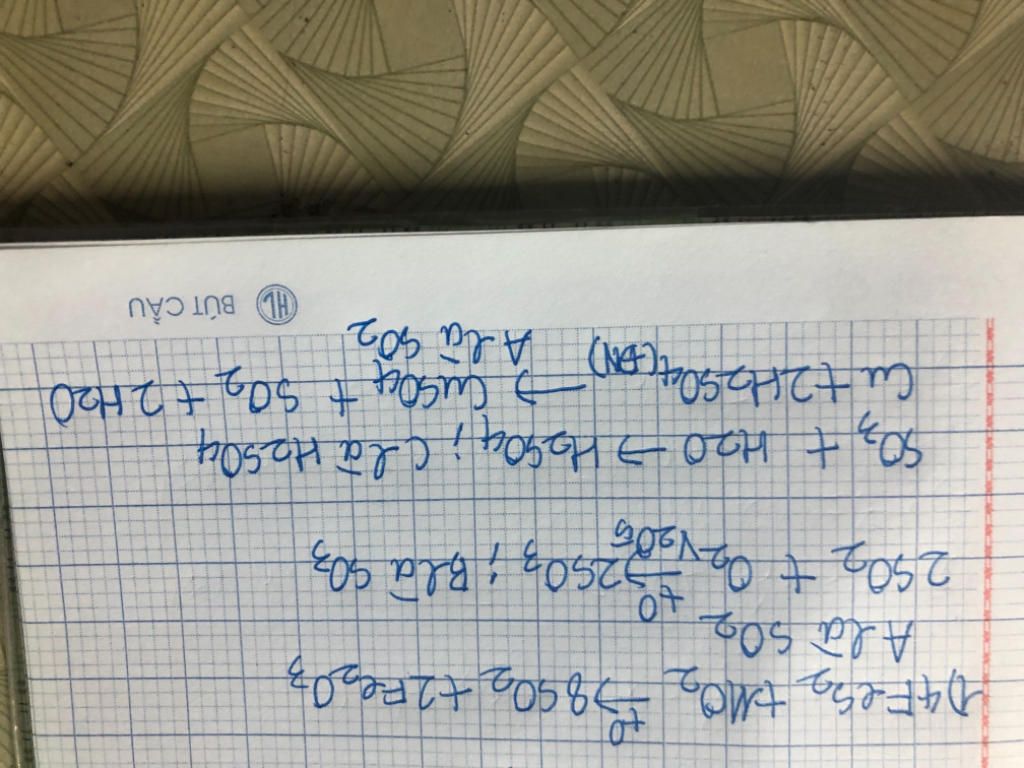 1) 4FeS₂ + 11O₂ –t⁰→ 8SO₂ + 2Fe₂O₃
A là SO₂
2SO₂ + O₂ –t⁰, V₂O₅→ 2SO₃ ; B là SO₃
SO₃ + H2O → H₂SO₄ ; C là H₂SO₄
Cu + 2H₂SO₄(ĐN) → CuSO₄ + SO₂ + 2H2O
A là SO₂
HL BÚT CẦU